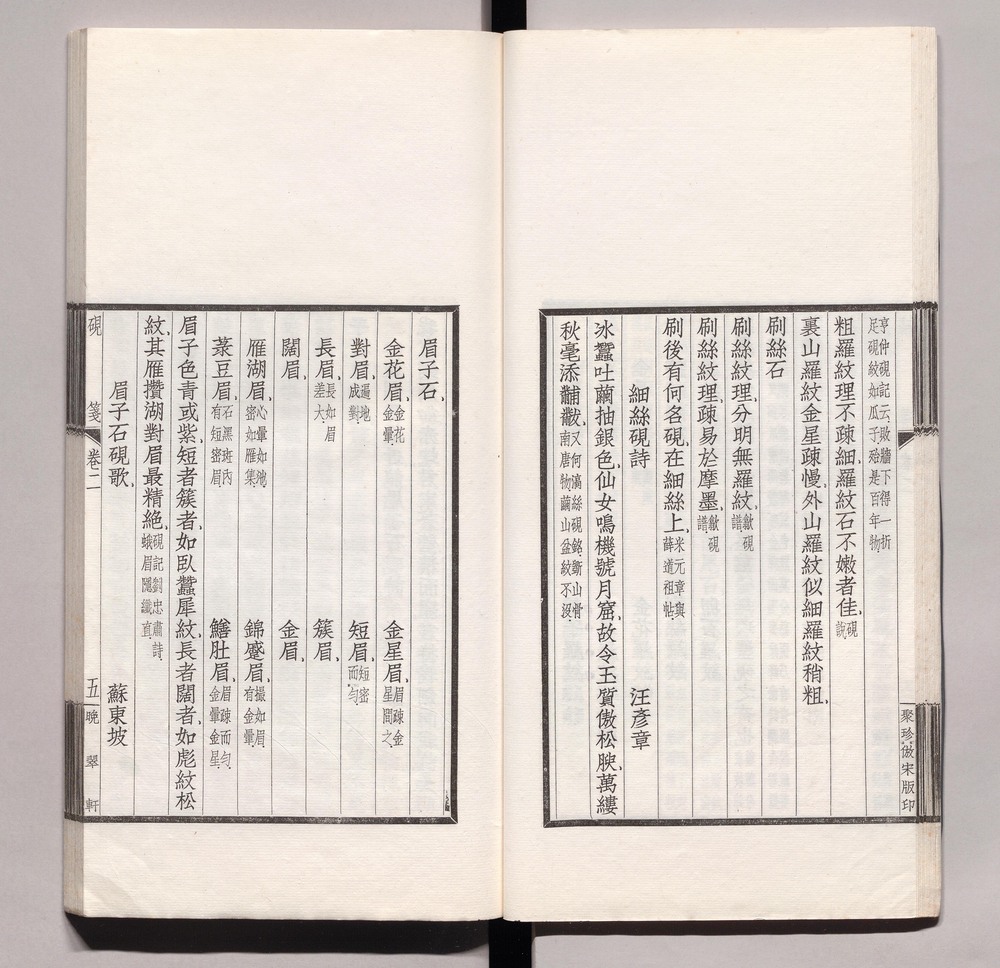 亨仲硯記云、敗牆下得一折
足硯、紋如瓜子、殆是百年物
粗羅紋理不疎、細羅紋石不嫩者佳、硯說
裏山羅紋金星疎慢、外山羅紋似細羅紋稍粗、
刷絲石
刷絲紋理分明無羅紋、歙硯譜
刷絲紋理、疎易於摩墨、歙硯譜
刷後有何名硯、在細絲上、米元章與薛道祖帖、
細絲硯詩 汪彥章
冰蠶吐繭抽銀色、仙女鳴機號月窟、故令玉質傲松腴、萬縷
秋毫添黼黻、又何薖絲硯銘、斵山骨南唐物、繭山盆紋不沒、
聚珍倣宋版印
眉子石、
金花眉、金花金暈、 金星眉、眉疎金星間之、
對眉、遍地成對、 短眉、短密而勻
長眉、長如眉差大、 簇眉、
闊眉、 金眉、
雁湖眉、心暈如池、密如雁集、 錦蹙眉、撮如眉有金暈、
菉豆眉、石黑斑內有短密眉 鱔肚眉、眉疎而勻、金暈金星、
眉子色青或紫、短者簇者、如臥蠶犀紋、長者闊者、如彪紋松
紋、其雁攢湖對眉最精絕、硯記、劉忠肅詩、蛾眉隱纖直、
眉子石硯歌、 蘇東坡
硯箋 卷二 五 晚翠軒